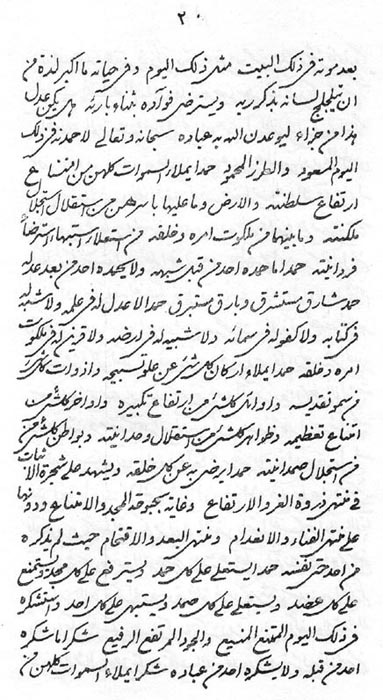 ٢٠
بعد موته فی ذلک البیت مثل ذلک الیوم وفی حیاته ما اکبر لذة من
ان یتلجلج لسانه بذکر ربه ویسترضی فؤاده بثناء بارئه هل یکن عدل
هذا من جزاء لیوعدن الله به عباده سبحانه وتعالی لاحمدنه فی ذلک
الیوم المسعود والطرز المحمود حمدا یملاء السموات کلهن من امتناع
ارتفاع سلطنته والارض وما علیها باسرهن من استقلال استجلال
ملکته وما بینهما من ملکوت امره وخلقه من استعلاء استبهاء استرضاء
فردانیته حمدا ما حمده احد من قبل شبهه ولا یحمده احد من بعد عدله
حمد شارق مستشرق وبارق مستبرق حمدا لا عدل له فی علمه ولا شبه له
فی کتابه ولا کفو له فی سمائه ولا شبیه له فی ارضه ولا قرین له فی ملکوت
امره وخلقه حمدا یملاء ارکان کل شئ عن علو تسبیحه واذوات کل شئ
من سمو تقدیسه واوائل کل شئ من ارتفاع تکبیره واواخر کل شئ من
امتناع تعظیمه وظواهر کل شئ من استقلال وحدانیته وبواطن کل شئ من
من استجلال صمدانیته حمدا یرضی به عن کل خلقه ویشهد علی شجرة الاثبات
فی منتهی ذروة العز والارتفاع وغایة بحبوحة المجد والامتناع ودونها
علی منتهی الفناء والانعدام ومنتهی البعد والاقتحام حیث لم یذکره
من احد حتی نفسه حمدا یستعلی علی کل حمد ویسترفع علی کل مجد ویستمنع
علی کل ویستعلی علی کل صمد ویستبهی علی کل احد واستشکره
فی ذلک الیوم الممتنع المنیع والجود المرتفع الرفیع شکرا ما شکره
احد من قبله ولا یشکره احد من عباده شکرا یملاء السموات کلهن من